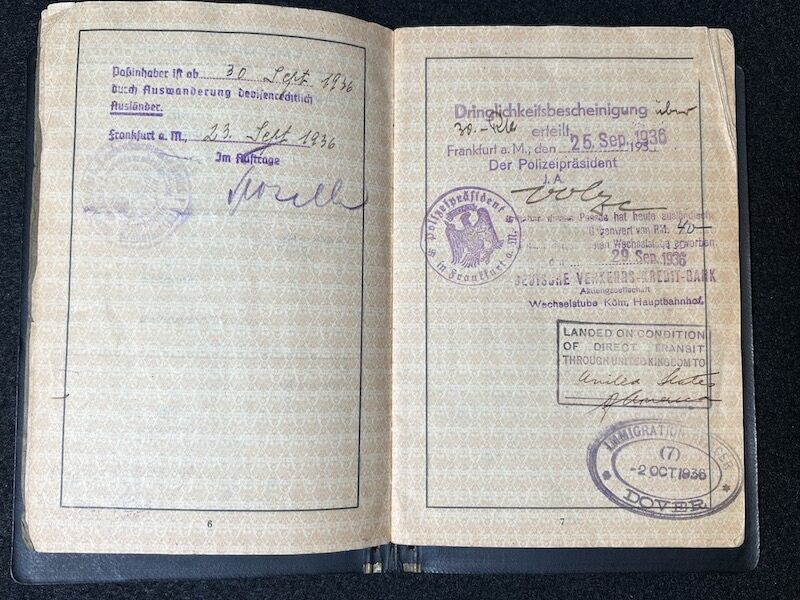 Paßinhaber ist ab 30 Sept. 1936
durch Auswanderung devisenrechtlich
Ausländer.
Frankfurt a. M., 23. Sept 1936
Im Auftrage
6
Dringlichkeitsbescheinigung über
30.-
erteilt
Frankfurt a. M., den 25. Sep. 1936 193
Der Polizeipräsident
J. A.
Polizeipräsident
in Frankfurt a. M.
Passes hat heute ausländische
Gegenwert von RM. 40-
Wechselstube erworben.
29. Sep. 1936
DEUTSCHE VERKEHRS-KREDIT-BANK
Aktiengesellschaft
Wechselstube Köln, Hauptbahnhof.
LANDED ON CONDITION
OF DIRECT TRANSIT
THROUGH UNITED KINGDOM TO
United States
of America
IMMIGRATION OFFICER
(7)
-2 OCT 1936
DOVER
7